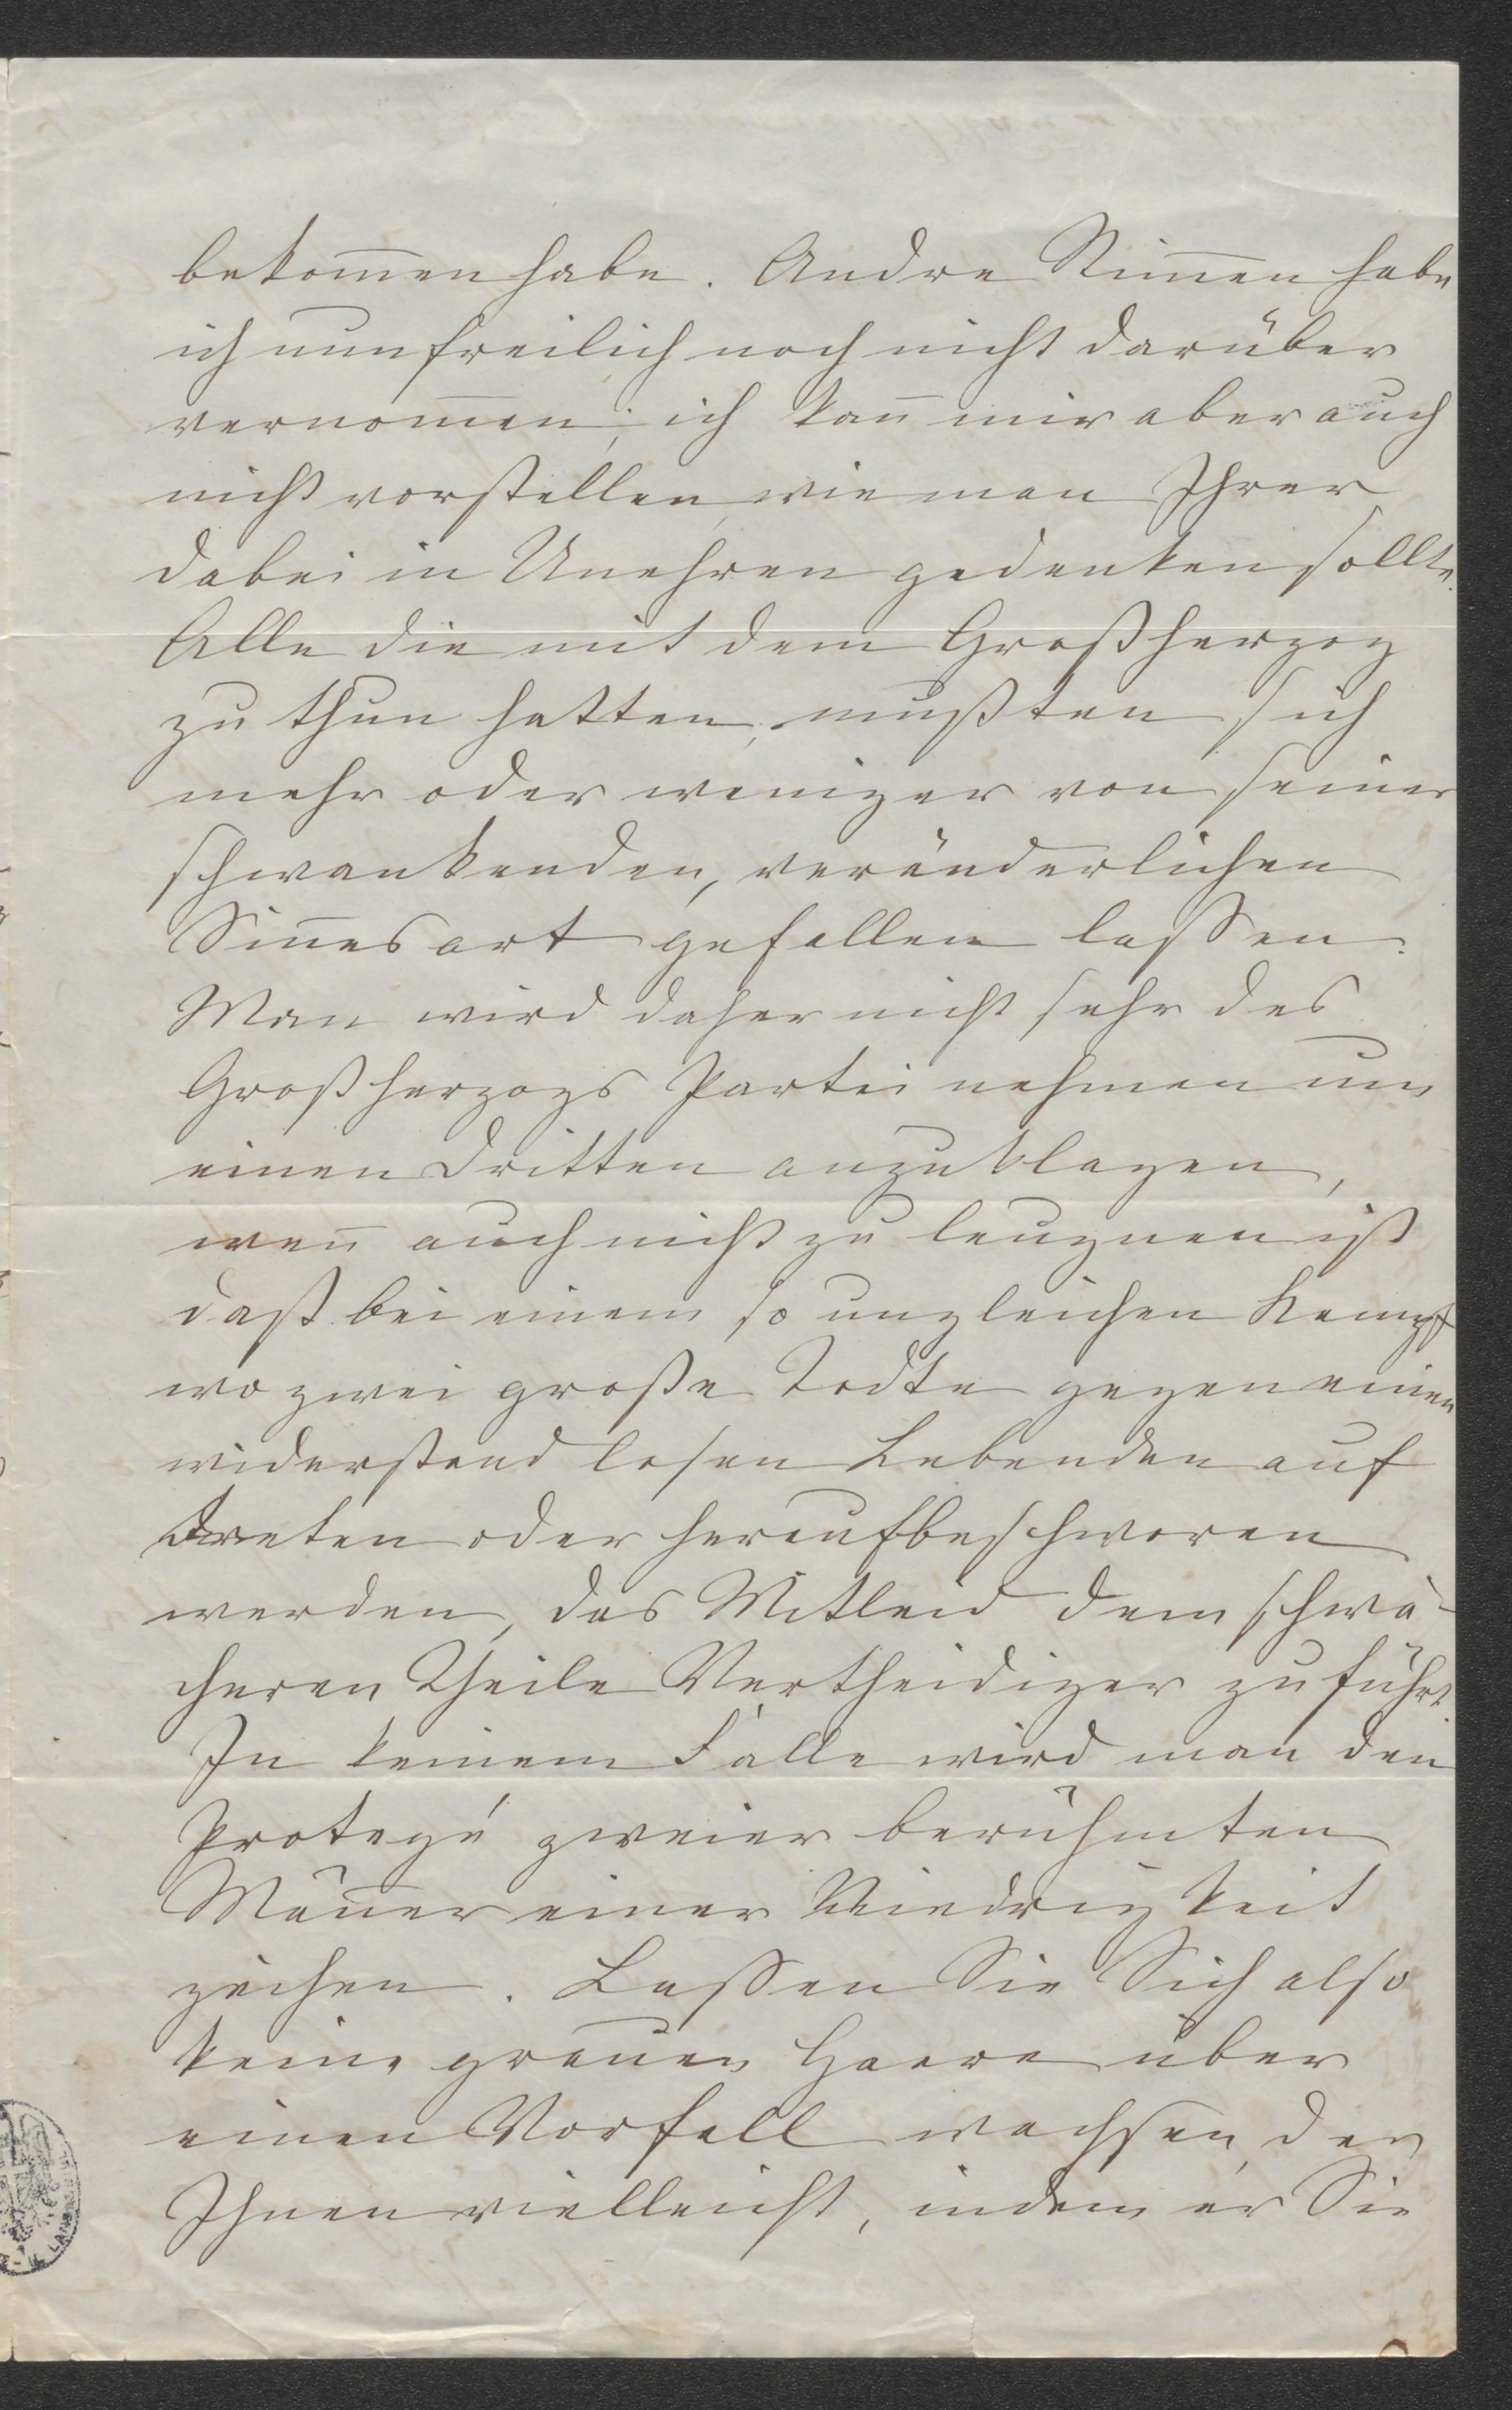 bekom̄en habe. Andre Stim̄en habe
ich nun freilich noch nicht darüber
vernom̄en; ich kan̄ mir aber auch
nicht vorstellen, wie man Ihrer
dabei in Unehren gedenken sollte.
Alle die mit dem Großherzog
zu thun hatten, mußten sich
mehr oder weniger von seiner
schwankenden, veränderlichen
Sin̄esart gefallen lassen.
Man wird daher nicht sehr des
Großherzogs Partei nehmen um
einen Dritten anzuklagen,
wen̄ auch nicht zu leugnen ist
daß bei einem so ungleichen Kampf
wo zwei große Todte gegen einen
widerstand losen Lebenden auf
treten oder heraufbeschworen
werden, das Mitleid dem schwä-
cheren Theile Vertheidiger zuführt.
In keinem Falle wird man den
Protegé zweier berühmten
Män̄er einer Niedrigkeit
zeihen. Lassen Sie Sich also
keine grauen Haare über
einen Vorfall wachsen, der
Ihnen vielleicht, indem er Sie